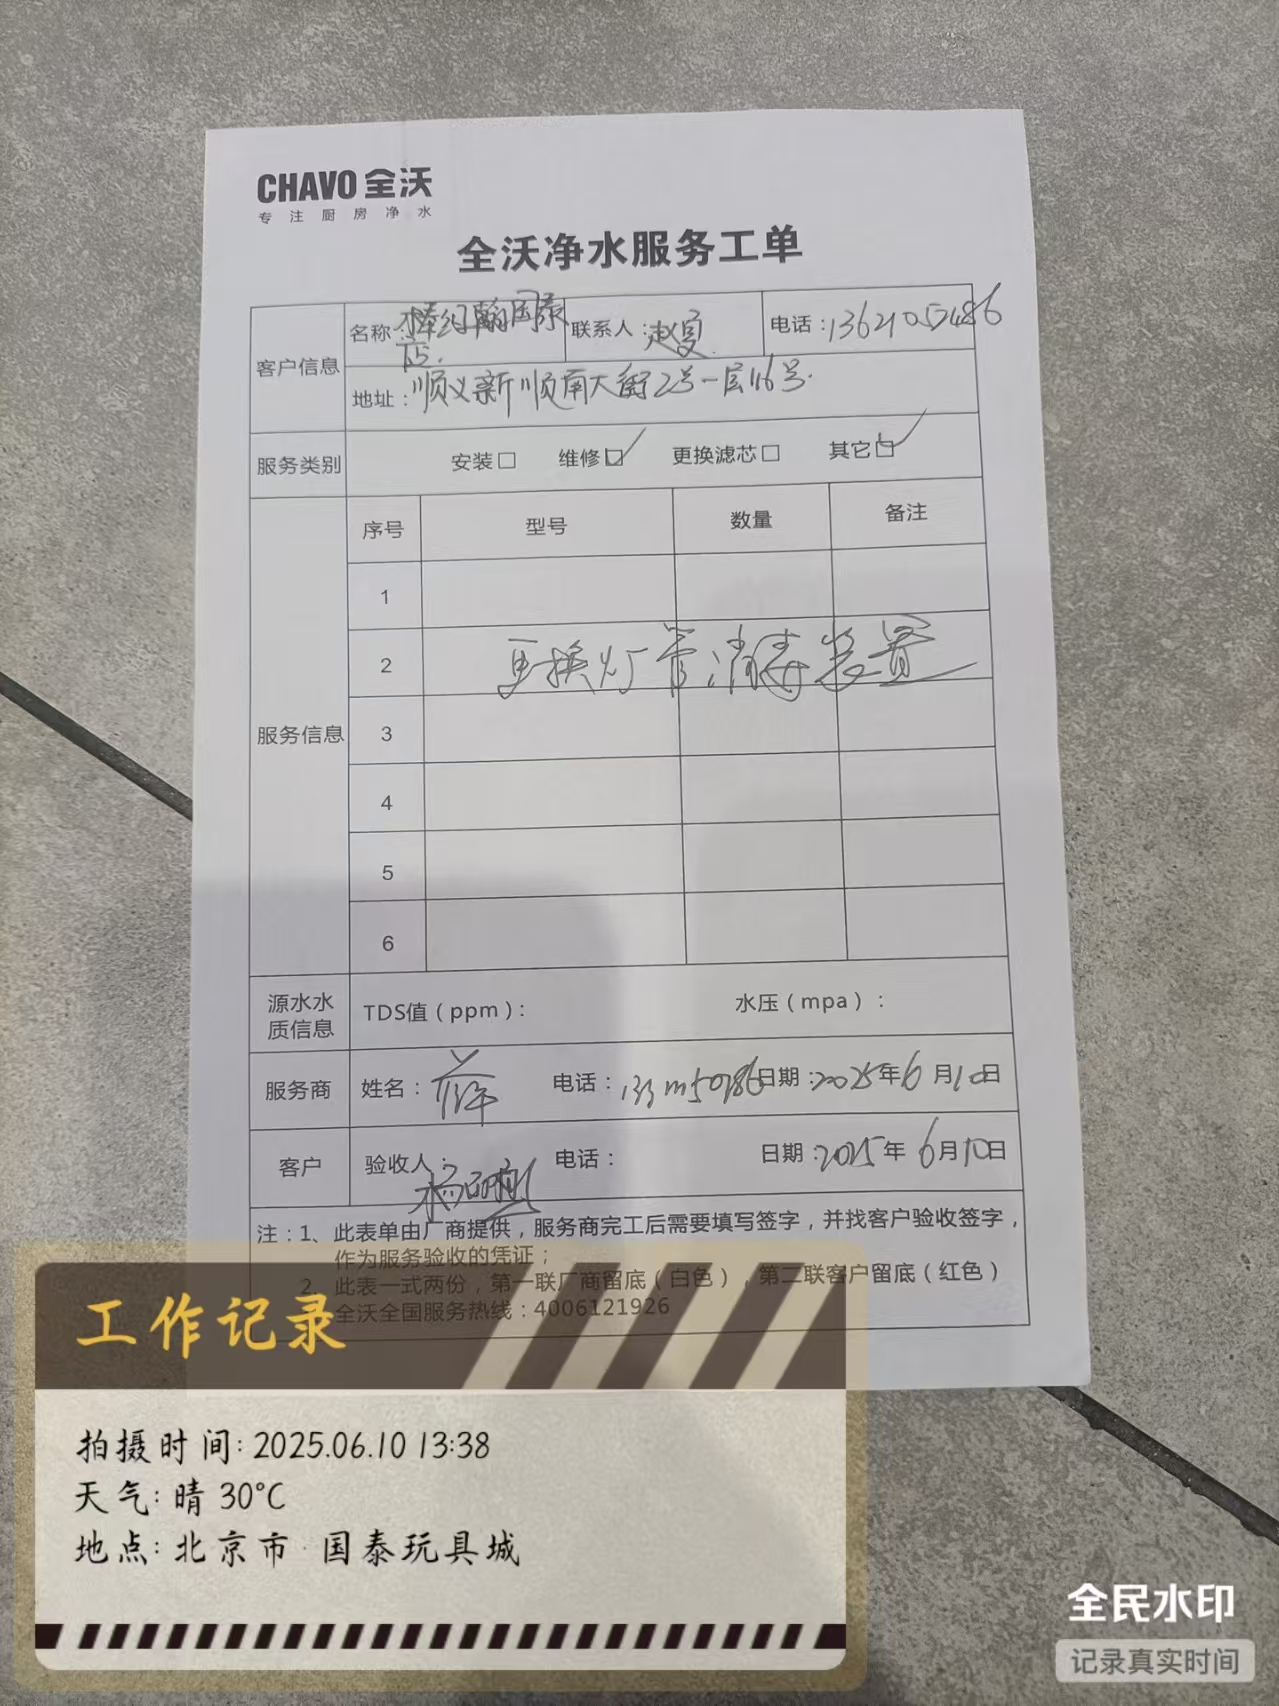 CHAVO 全沃
专注厨房净水
全沃净水服务工单
客户信息
名称 棒约翰国泰店. 联系人: 赵 电话:13621052486
地址: 顺义新顺南大街2号一层116号.
服务类别 安装□ 维修☑ 更换滤芯□ 其它☑
服务信息
序号 型号 数量 备注
1
2 更换灯管消毒装置
3
4
5
6
源水水质信息 TDS值(ppm): 水压(mpa):
服务商 姓名: 电话: 日期:2025年6月10日
客户 验收人: 杨 电话: 日期:2025年6月10日
注:1、此表单由厂商提供,服务商完工后需要填写签字,并找客户验收签字,
作为服务验收的凭证;
2、此表一式两份,第一联厂商留底(白色),第二联客户留底(红色)
全沃全国服务热线:4006121926
工作记录
拍摄时间: 2025.06.10 13:38
天气: 晴 30°C
地点: 北京市·国泰玩具城
全民水印
记录真实时间